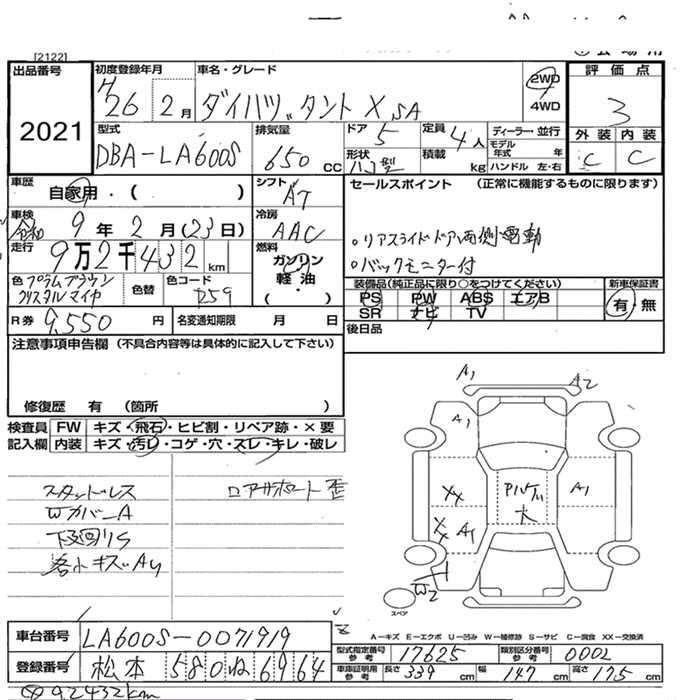 [2122]
出品番号 2021
初度登録年月 H26 2月
車名・グレード ダイハツ タント X SA
2WD
4WD
評価点 3
外装 C 内装 C
型式 DBA-LA600S
排気量 650 CC
ドア 5
形状
定員 4人
積載 kg
ディーラー・並行
モデル年式 年
ハンドル 左・右
車歴 自家用・( )
シフト AT
車検 令和 9年 2月(23日)
冷房 AAC
走行 9万2千432 km
燃料 ガソリン 軽油・( )
色 プラムブラウンクリスタルマイカ
色替
色コード
R券 9,550円
名変通知期限 月 日
セールスポイント (正常に機能するものに限ります)
。リアスライドドア両側電動
。バックモニター付
装備品(純正品に限り○をつけてください)
PS PW ABS エアB
SR ナビ TV
新車保証書 有・無
後日品
注意事項申告欄(不具合内容等は具体的に記入して下さい)
修復歴 有 (箇所 )
検査員記入欄
FW キズ・飛石・ヒビ割・リペア跡・×要
内装 キズ・汚レ・コゲ・穴・スレ・キレ・破レ
スタッドレス
WカバーA
下回りS
コアサポート歪
A1 A2
A1
XX A1
XX A1
W2
スペア
A-キズ E-エクボ U-凹み W-補修跡 S-サビ C-腐食 XX-交換済
車台番号 LA600S-0071919
登録番号 松本 580 ね 6964
型式指定番号 参考 17625
類別区分番号 参考 0002
車庫証明用 参考 長さ 339 cm 幅 147 cm 高さ 175 cm
92432km